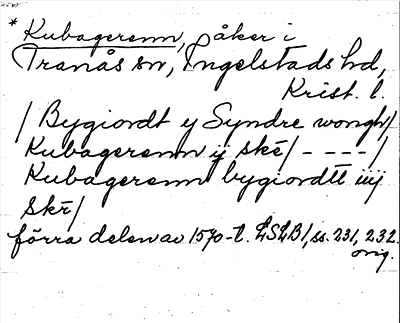 * Kubagerenn, åker i
Tranås sn, Ingelstads hd,
Krist. l.
/ Bygiordt y Syndre wongh/
Kubagerenn ij skē/ - - - - /
Kubagerenn bygiordtt iiij
skē/
förra delen av 1570-t. LSLB1, ss. 231, 232.
orig.